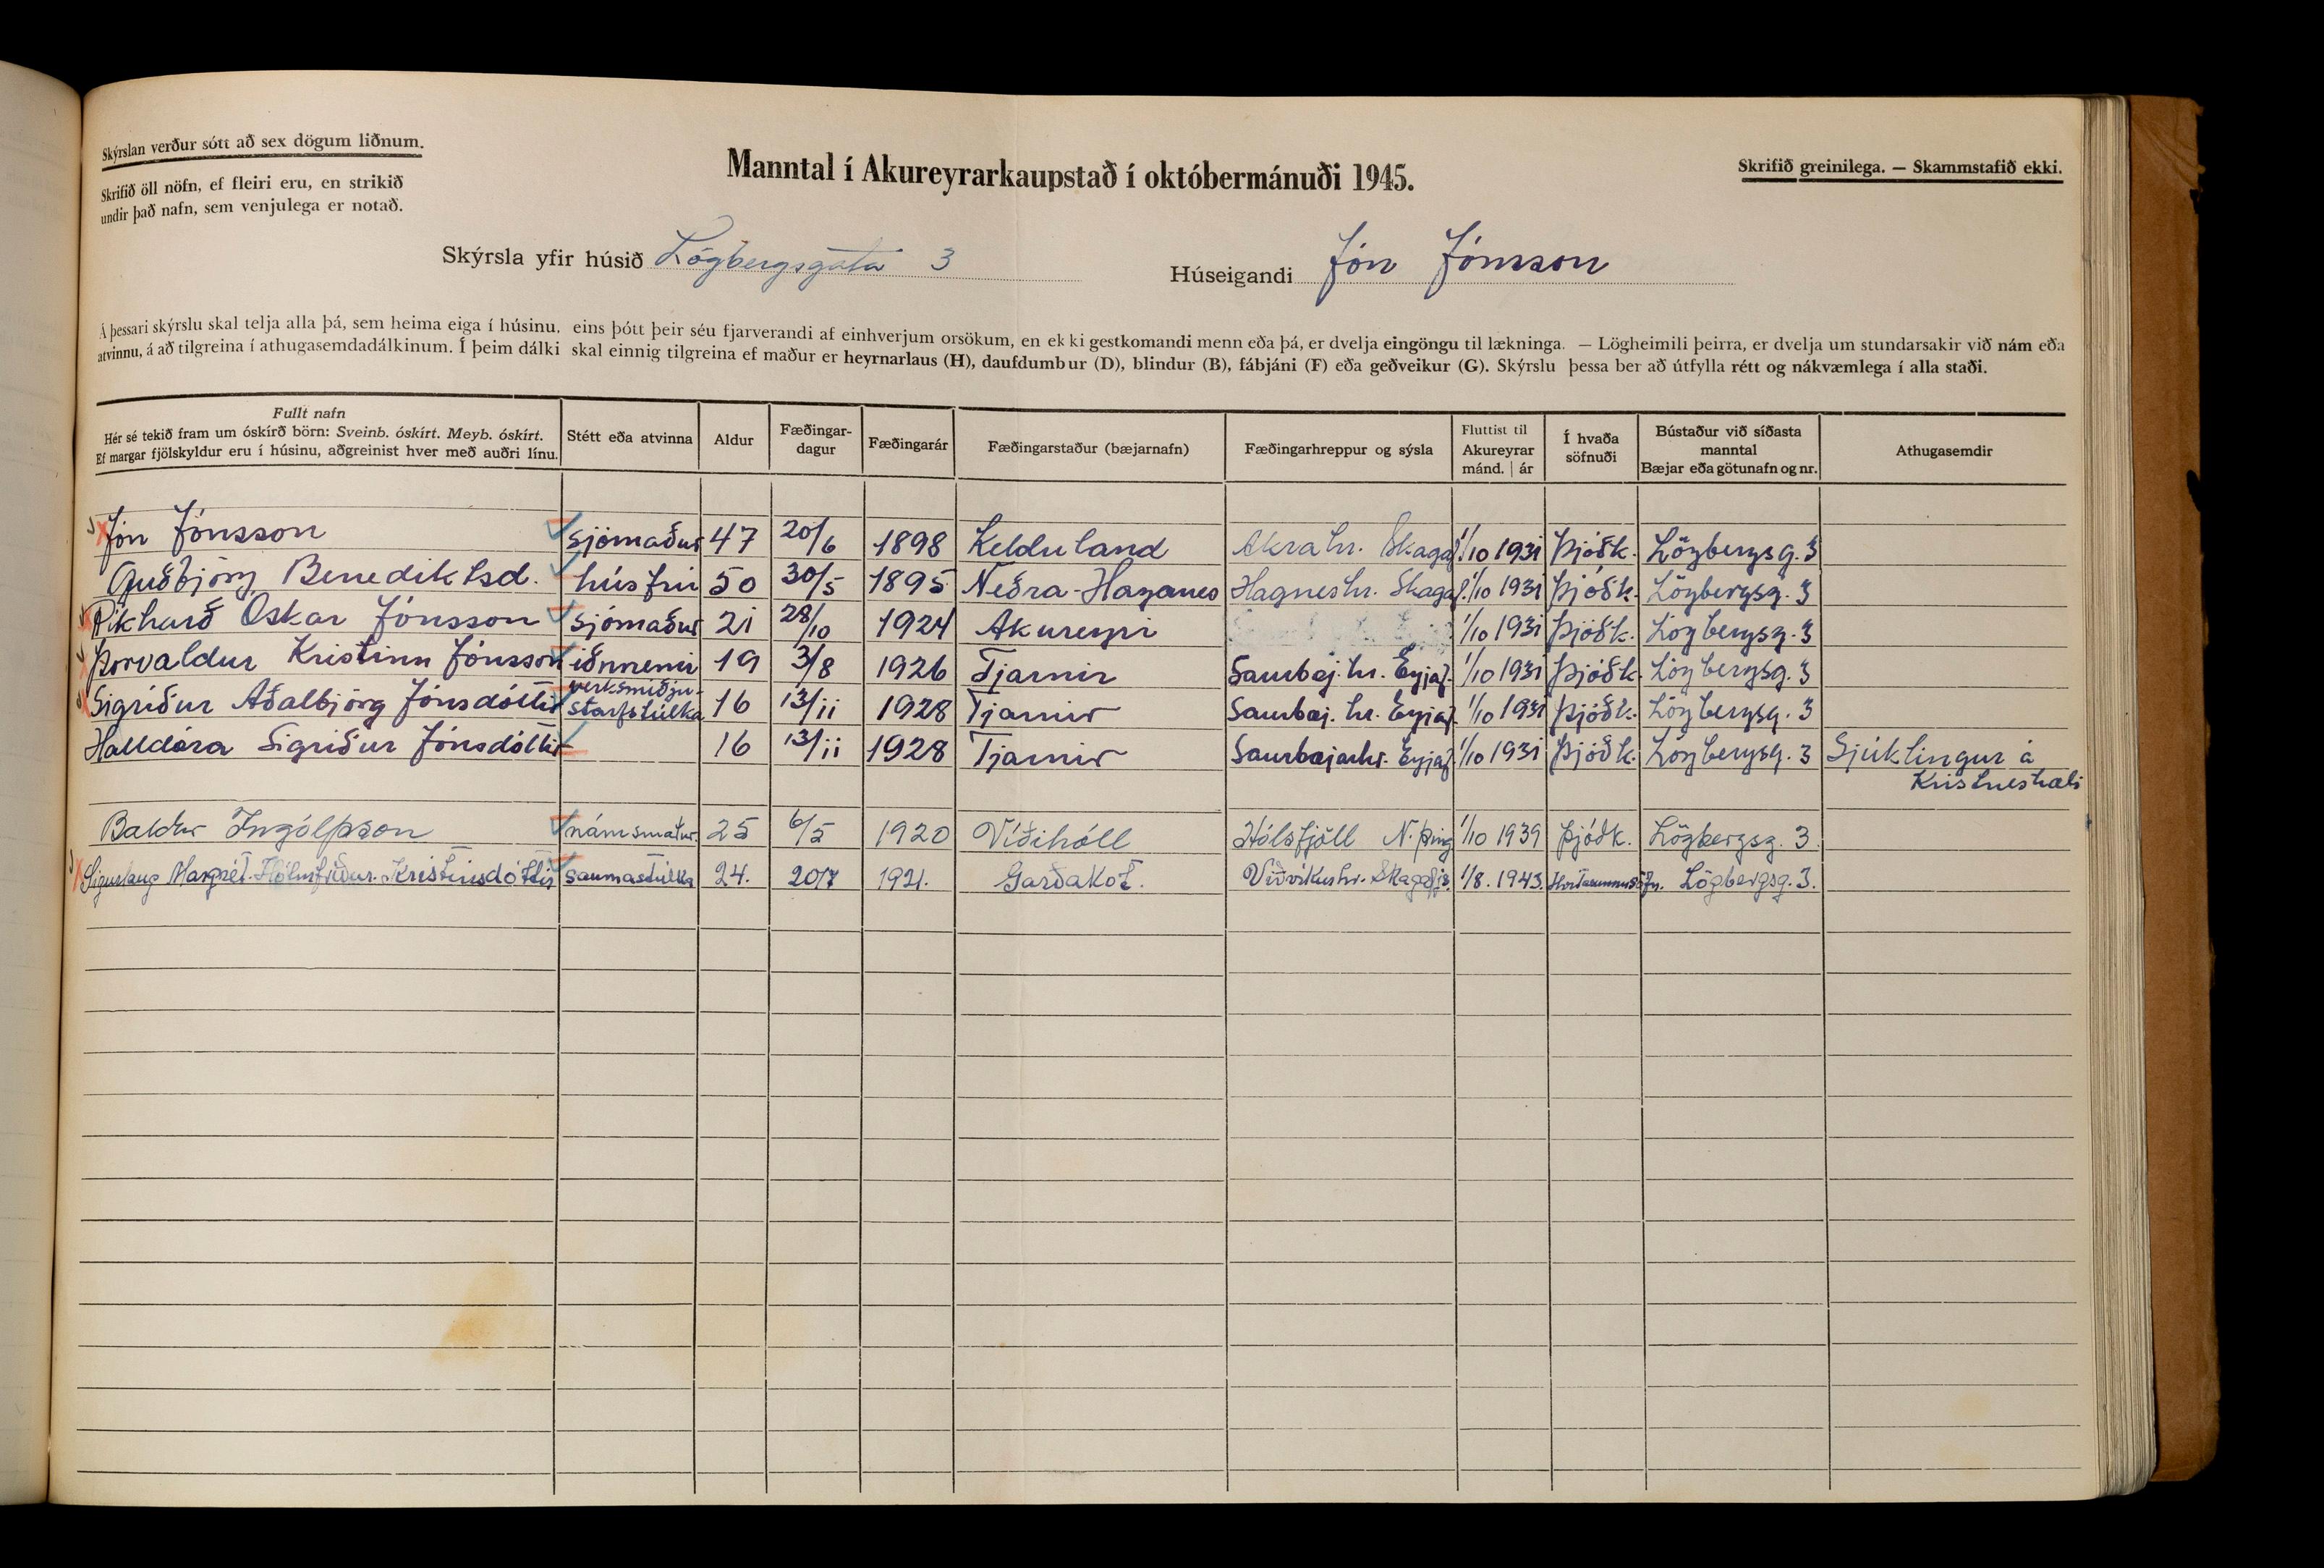 Skýrslan verður sótt að sex dögum liðnum.
Skrifið öll nöfn, ef fleiri eru, en strikið
undir það nafn, sem venjulega er notað.
Manntal í Akureyrarkaupstað í októbermánuði 1945.
Skrifið greinilega. — Skammstafið ekki.
Skýrsla yfir húsið Lögbergsgata 3
Húseigandi Jón Jónsson
Á þessari skýrslu skal telja alla þá, sem heima eiga í húsinu, eins þótt þeir séu fjarverandi af einhverjum orsökum, en ekki gestkomandi menn eða þá, er dvelja eingöngu til lækninga. — Lögheimili þeirra, er dvelja um stundarsakir við nám eða
atvinnu, á að tilgreina í athugasemdadálkinum. Í þeim dálki skal einnig tilgreina ef maður er heyrnarlaus (H), daufdumbur (D), blindur (B), fábjáni (F) eða geðveikur (G). Skýrslu þessa ber að útfylla rétt og nákvæmlega í alla staði.
Fullt nafn
Hér sé tekið fram um óskírð börn: Sveinb. óskírt. Meyb. óskírt.
Ef margar fjölskyldur eru í húsinu, aðgreinist hver með auðri línu.
Stétt eða atvinna
Aldur
Fæðingar-
dagur
Fæðingarár
Fæðingarstaður (bæjarnafn)
Fæðingarhreppur og sýsla
Fluttist til
Akureyrar
mánd. | ár
Í hvaða
söfnuði
Bústaður við síðasta
manntal
Bæjar eða götunafn og nr.
Athugasemdir
Jón Jónsson sjómaður 47 20/6 1898 Kelduland Akrahr. Skagaf. 1/10 1931 Þjóðk. Lögbergsg. 3
Guðbjörg Benediktsd. húsfrú 50 30/5 1895 Neðra-Haganes Hagneshr. Skagaf. 1/10 1931 Þjóðk. Lögbergsg. 3
Ríkharð Óskar Jónsson sjómaður 21 28/10 1924 Akureyri 1/10 1931 Þjóðk. Lögbergsg. 3
Þorvaldur Kristinn Jónsson iðnnemi 19 3/8 1926 Tjarnir Saurbæj.hr. Eyjaf. 1/10 1931 Þjóðk. Lögbergsg. 3
Sigríður Aðalbjörg Jónsdóttir verksmiðju-
starfstúlka 16 13/11 1928 Tjarnir Saurbæj. hr. Eyjaf. 1/10 1931 Þjóðk. Lögbergsg. 3
Halldóra Sigríður Jónsdóttir 16 13/11 1928 Tjarnir Saurbæjarhr. Eyjaf. 1/10 1931 Þjóðk. Lögbergsg. 3 Sjúklingur á
Kristneshæli
Baldur Ingólfsson námsmaður. 25 6/5 1920 Víðihóll Hólsfjöll N. Þing 1/10 1939 Þjóðk. Lögbergsg. 3
Sigurlaug Margrét Hólmfríður Kristinsdóttir saumastúlka 24. 20/7 1921. Garðakot. Viðvíkurhr. Skagafjs. 1/8. 1943. Lögbergsg. 3.